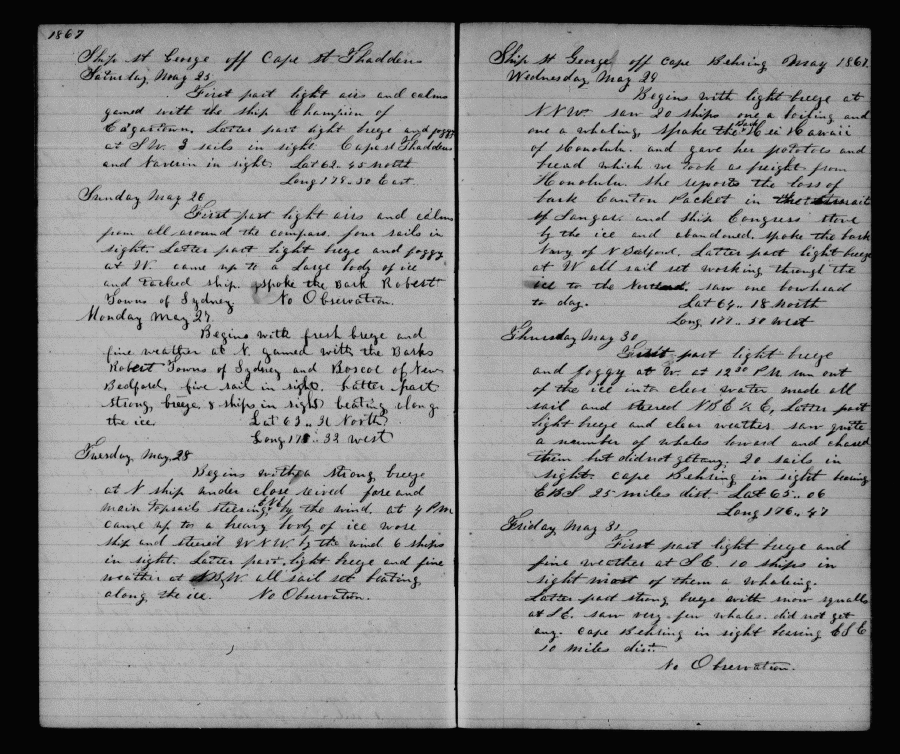 1867
Ship St George off Cape St Thaddens
Saturday May 25
First part light airs and calms
gamed with the ship Champion of
Edgartown. Latter part light breze and foggy
at S.W. 3 sails in sight Capes Thaddens
and Naverin in sight. Lat 62.. 45 north
Long 179.. 50 East
Sunday May 26
First part light airs and calms
from all around the compass. four sails in
sight. Latter part light breze and foggy
at W. came up to a Large body of ice
and tacked ship. spoke the Bark Robert
Towns of Sydney No Observation.
Monday May 27
Begins with fresh breze and
fine weather at N. gamed with the Barks
Robert Towns of Sydney and Boscoe of New
Bedford, five sail in sight. Latter part
strong breeze 8 ships in sight beating along
the ice. Lat 63.. North
Long 178.. 33 west
Tuesday May 28
Begins with a strong breeze
at N ship under close reived fore and
main topsails steering by the wind. at 4 P.M
came up to a heavy body of ice wore
ship and steered W N W. by the wind 6 ships
in sight. Latter part light breze and fine
weather at N.B.W. all sail set beating
along the ice. No Observation.
Ship St George off Cape Behring May 1867
Wednesday May 29
Begins with light breeze at
N N W. saw 20 ships one a boiling and
one a whaling, spoke the Bark Hae Hawaii
of Honolulu. and gave her potatoes and
bread which we took as freight from
Honolulu. She reports the loss of
bark Canton Packet in the straits
of Sangar. and ship Congress stove
by the ice and abandoned. spoke the bark
Navy of N Bedford. Latter part light breeze
at W all sail set working through the
ice to the Northard. saw one bowhead
to day. Lat 64.. 18 North
Long 177.. 50 west
Thursday May 30
First part light breeze
and foggy at W. at 12 30 P.M. run out
of the ice into clear water made all
sail and steered N B E ½ E, Latter part
light breze and clear weather. saw quite
a number of whales toward and chased
them but did not get any. 20 sails in
sight. Cape Behring in sight bearing
E B S 25 miles dist. Lat 65.. 06
Long 176.. 47
Friday May 31
First part light breze and
fine weather at S E. 10 ships in
sight most of them a whaleing.
Latter part strong breze with snow squalls
at S E. saw very few whales. did not get
any. Cape Behring in sight bearing E S E
10 miles dist.
No Observation.